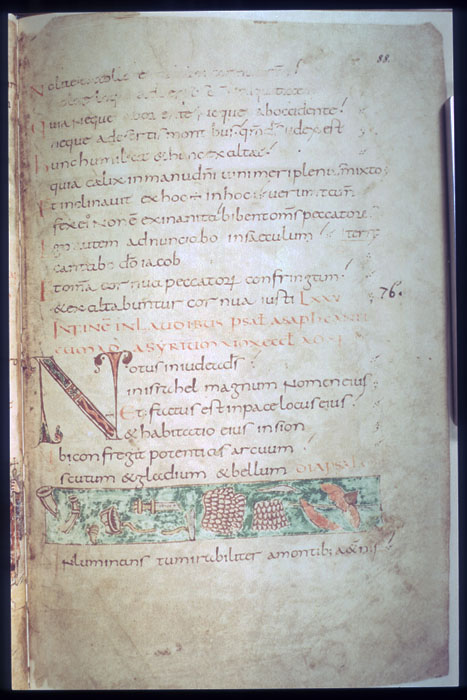 88.
quia neque ab oriente neque ab occidente
neque a desertis montibus qm ds iudex est
hunc humiliat & hunc exaltat
quia calix in manu dni uini meri plenus mixto
& inclinauit ex hoc in hoc uerum tam
fex ei non est exinanita bibent oms peccatores
ego autem adnunciabo in saeculum terrę
cantabo do iacob
& omnia cornua peccatorum confringam
& exaltabuntur cornua iusti LXXV
76.
IN FINE IN LAUDIBUS PSAL ASAPH CANTI
Notus in iudea ds
in israhel magnum nomen eius
Et factus est in pace locus eius
& habitatio eius in sion
Ibi confregit potentias arcuum
scutum & gladium & bellum DIAPSAL
Inluminans tu mirabiliter a montib: a&nis